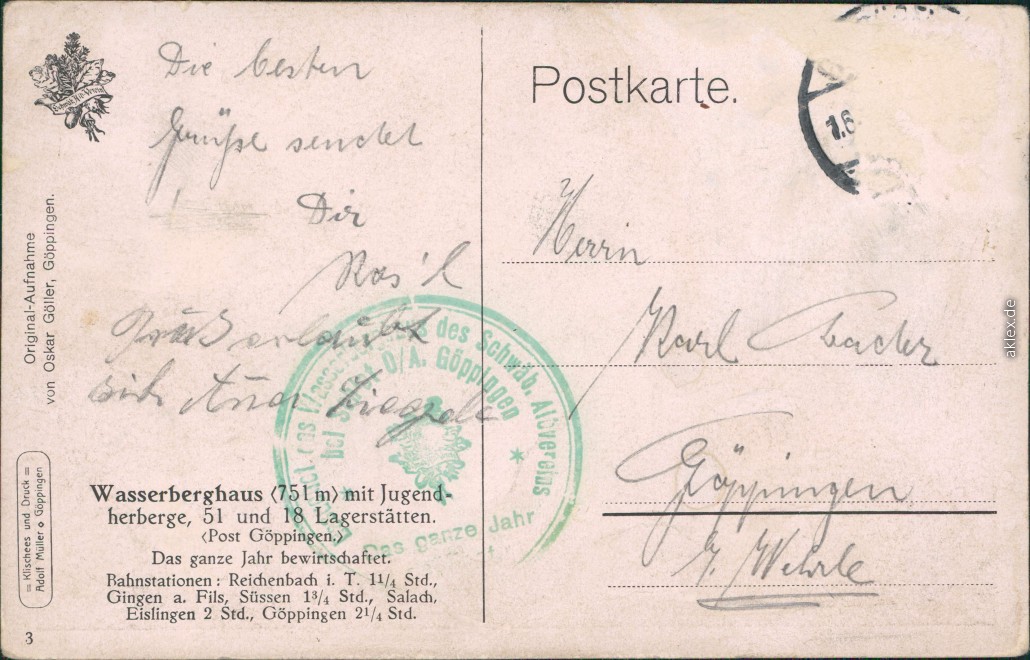 Die besten
Grüße sendet
Dir
Ros'l
Gruß erlaubt
sich
Schwäb. Alb-Verein
Original-Aufnahme
von Oskar Göller, Göppingen.
= Klischees und Druck =
Adolf Müller ⋄ Göppingen
des Schwäb. Albvereins
bei O/A. Göppingen
Das ganze Jahr
Wasserberghaus ⟨751 m⟩ mit Jugend-
herberge, 51 und 18 Lagerstätten.
⟨Post Göppingen.⟩
Das ganze Jahr bewirtschaftet.
Bahnstationen: Reichenbach i. T. 1 1/4 Std.,
Gingen a. Fils, Süssen 1 3/4 Std., Salach,
Eislingen 2 Std., Göppingen 2 1/4 Std.
3
Postkarte.
1.6.
Herrn
Karl
Göppingen
Wehrle
aklex.de